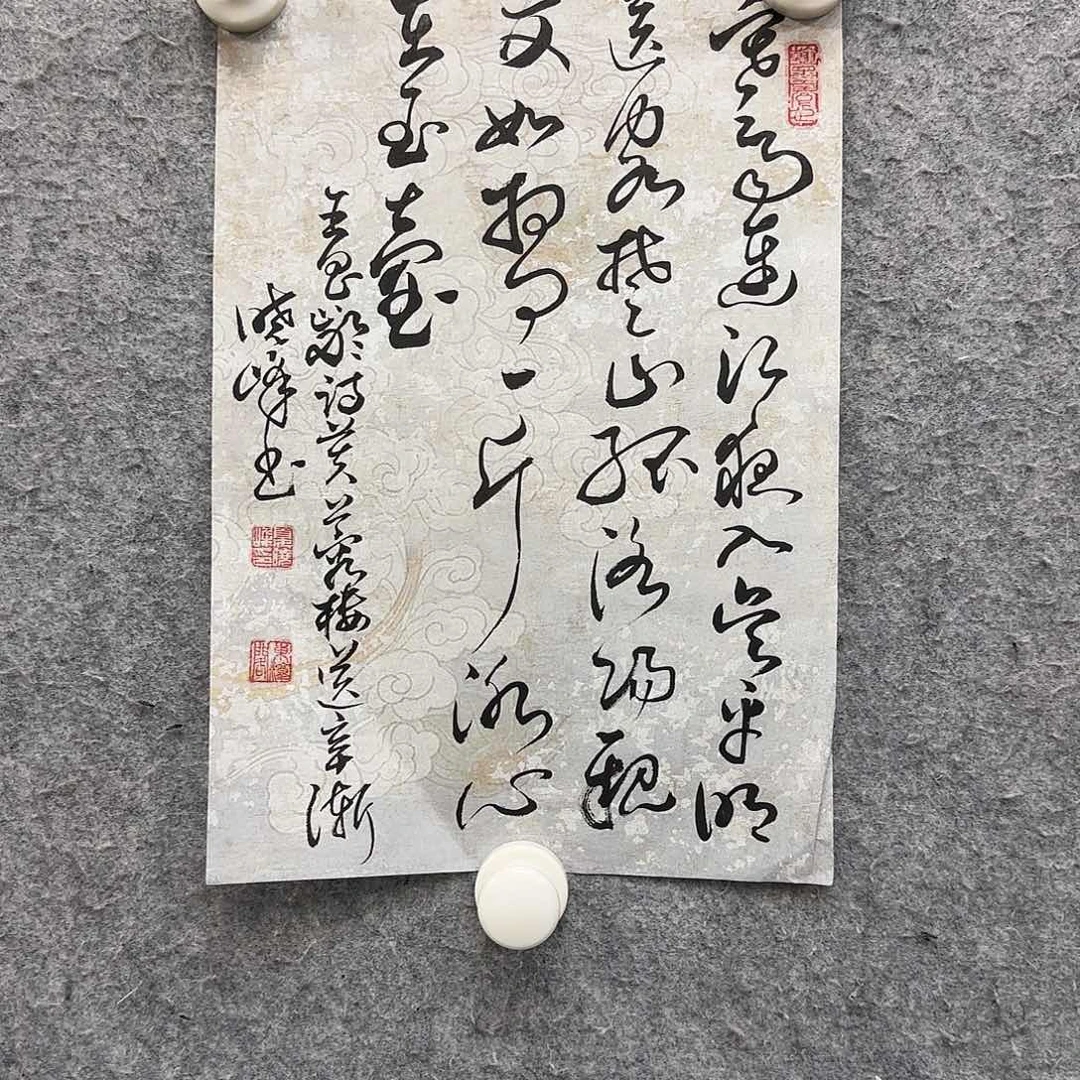 寒雨連江夜入吴平明
送客楚山孤洛陽親
友如相问一片冰心
在玉壺
王昌齡詩芙蓉樓送辛漸
曉峰书